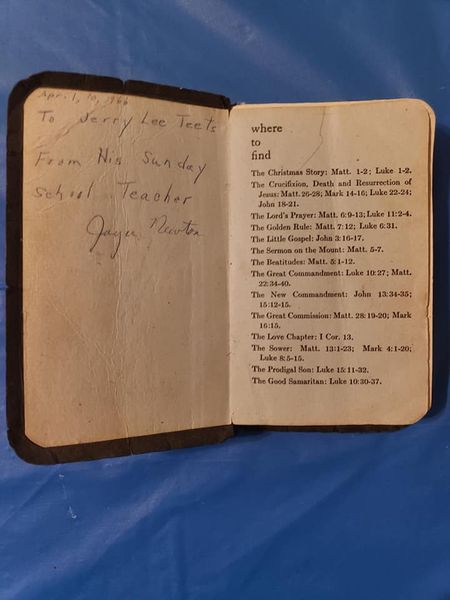 April, 10, 1966
To Jerry Lee Teets
From His Sunday
School Teacher
Newton
where
to
find
The Christmas Story: Matt. 1-2; Luke 1-2.
The Crucifixion, Death and Resurrection of
Jesus: Matt. 26-28; Mark 14-16; Luke 22-24;
John 18-21.
The Lord's Prayer: Matt. 6:9-13; Luke 11:2-4.
The Golden Rule: Matt. 7:12; Luke 6:31.
The Little Gospel: John 3:16-17.
The Sermon on the Mount: Matt. 5-7.
The Beatitudes: Matt. 5:1-12.
The Great Commandment: Luke 10:27; Matt.
22:34-40.
The New Commandment: John 13:34-35;
15:12-15.
The Great Commission: Matt. 28:19-20; Mark
16:15.
The Love Chapter: I Cor. 13.
The Sower: Matt. 13:1-23; Mark 4:1-20;
Luke 8:5-15.
The Prodigal Son: Luke 15:11-32.
The Good Samaritan: Luke 10:30-37.